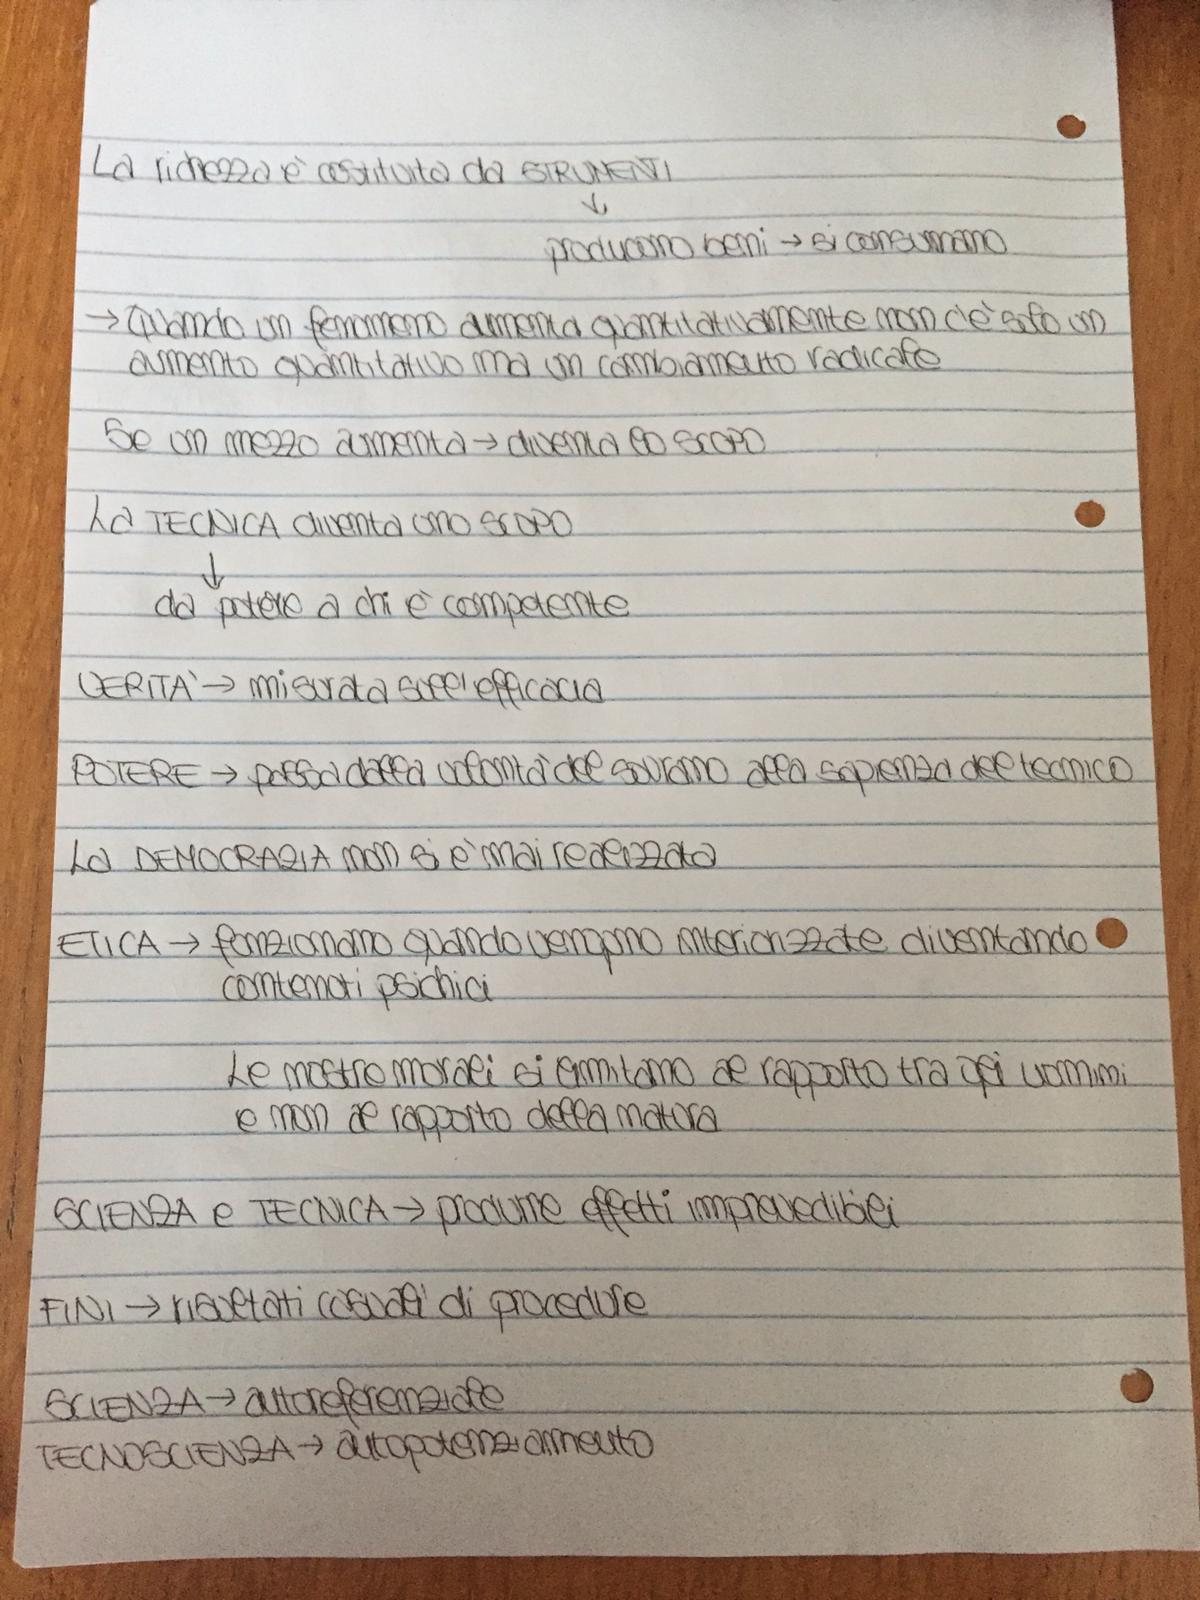 La ricchezza è costituita da STRUMENTI
↓
producono beni → si consumano
→ Quando un fenomeno aumenta quantitativamente non c'è solo un
aumento quantitativo ma un cambiamento radicale
Se un mezzo aumenta → diventa lo SCOPO
La TECNICA diventa uno SCOPO
↓
da potere a chi è competente
VERITA' → misurata sull'efficacia
POTERE → passa dalla volontà del sovrano alla sapienza del tecnico
La DEMOCRAZIA non si è mai realizzata
ETICA → funzionano quando vengono interiorizzate diventando
contenuti psichici
Le nostre morali si limitano al rapporto tra gli uomini
e non al rapporto della natura
SCIENZA e TECNICA → produrre effetti imprevedibili
FINI → risultati casuali di procedure
SCIENZA → autoreferenziale
TECNOSCIENZA → autopotenziamento